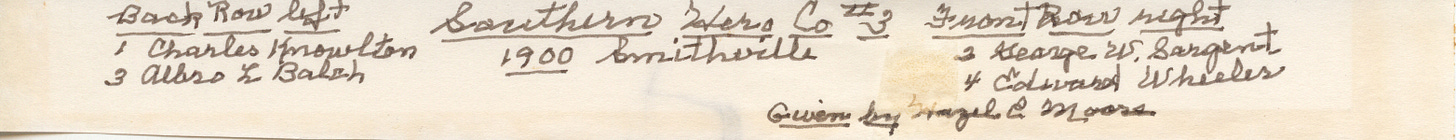 Back Row left
1 Charles Knowlton
3 Albro L Balch
Southern Hero Co #3
1900 Smithville
Front Row right
2 George W. Sargent
4 Edward Wheeler
Given by Hazel C Moore